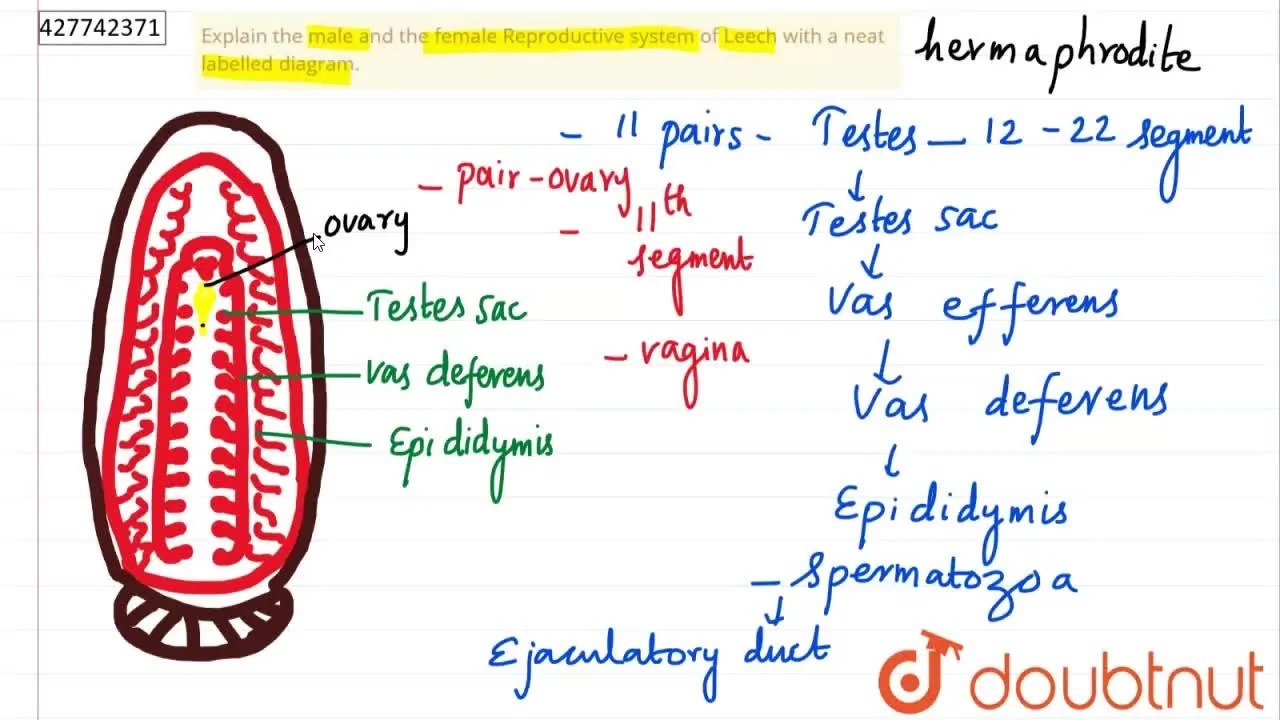 427742371
Explain the male and the female Reproductive system of Leech with a neat
labelled diagram.
hermaphrodite
- 11 pairs - Testes - 12 - 22 segment
- pair-ovary
- 11th
segment
- vagina
Testes sac
Vas efferens
Vas deferens
Epididymis
- Spermatozoa
Ejaculatory duct
ovary
Testes sac
Vas deferens
Epididymis
doubtnut